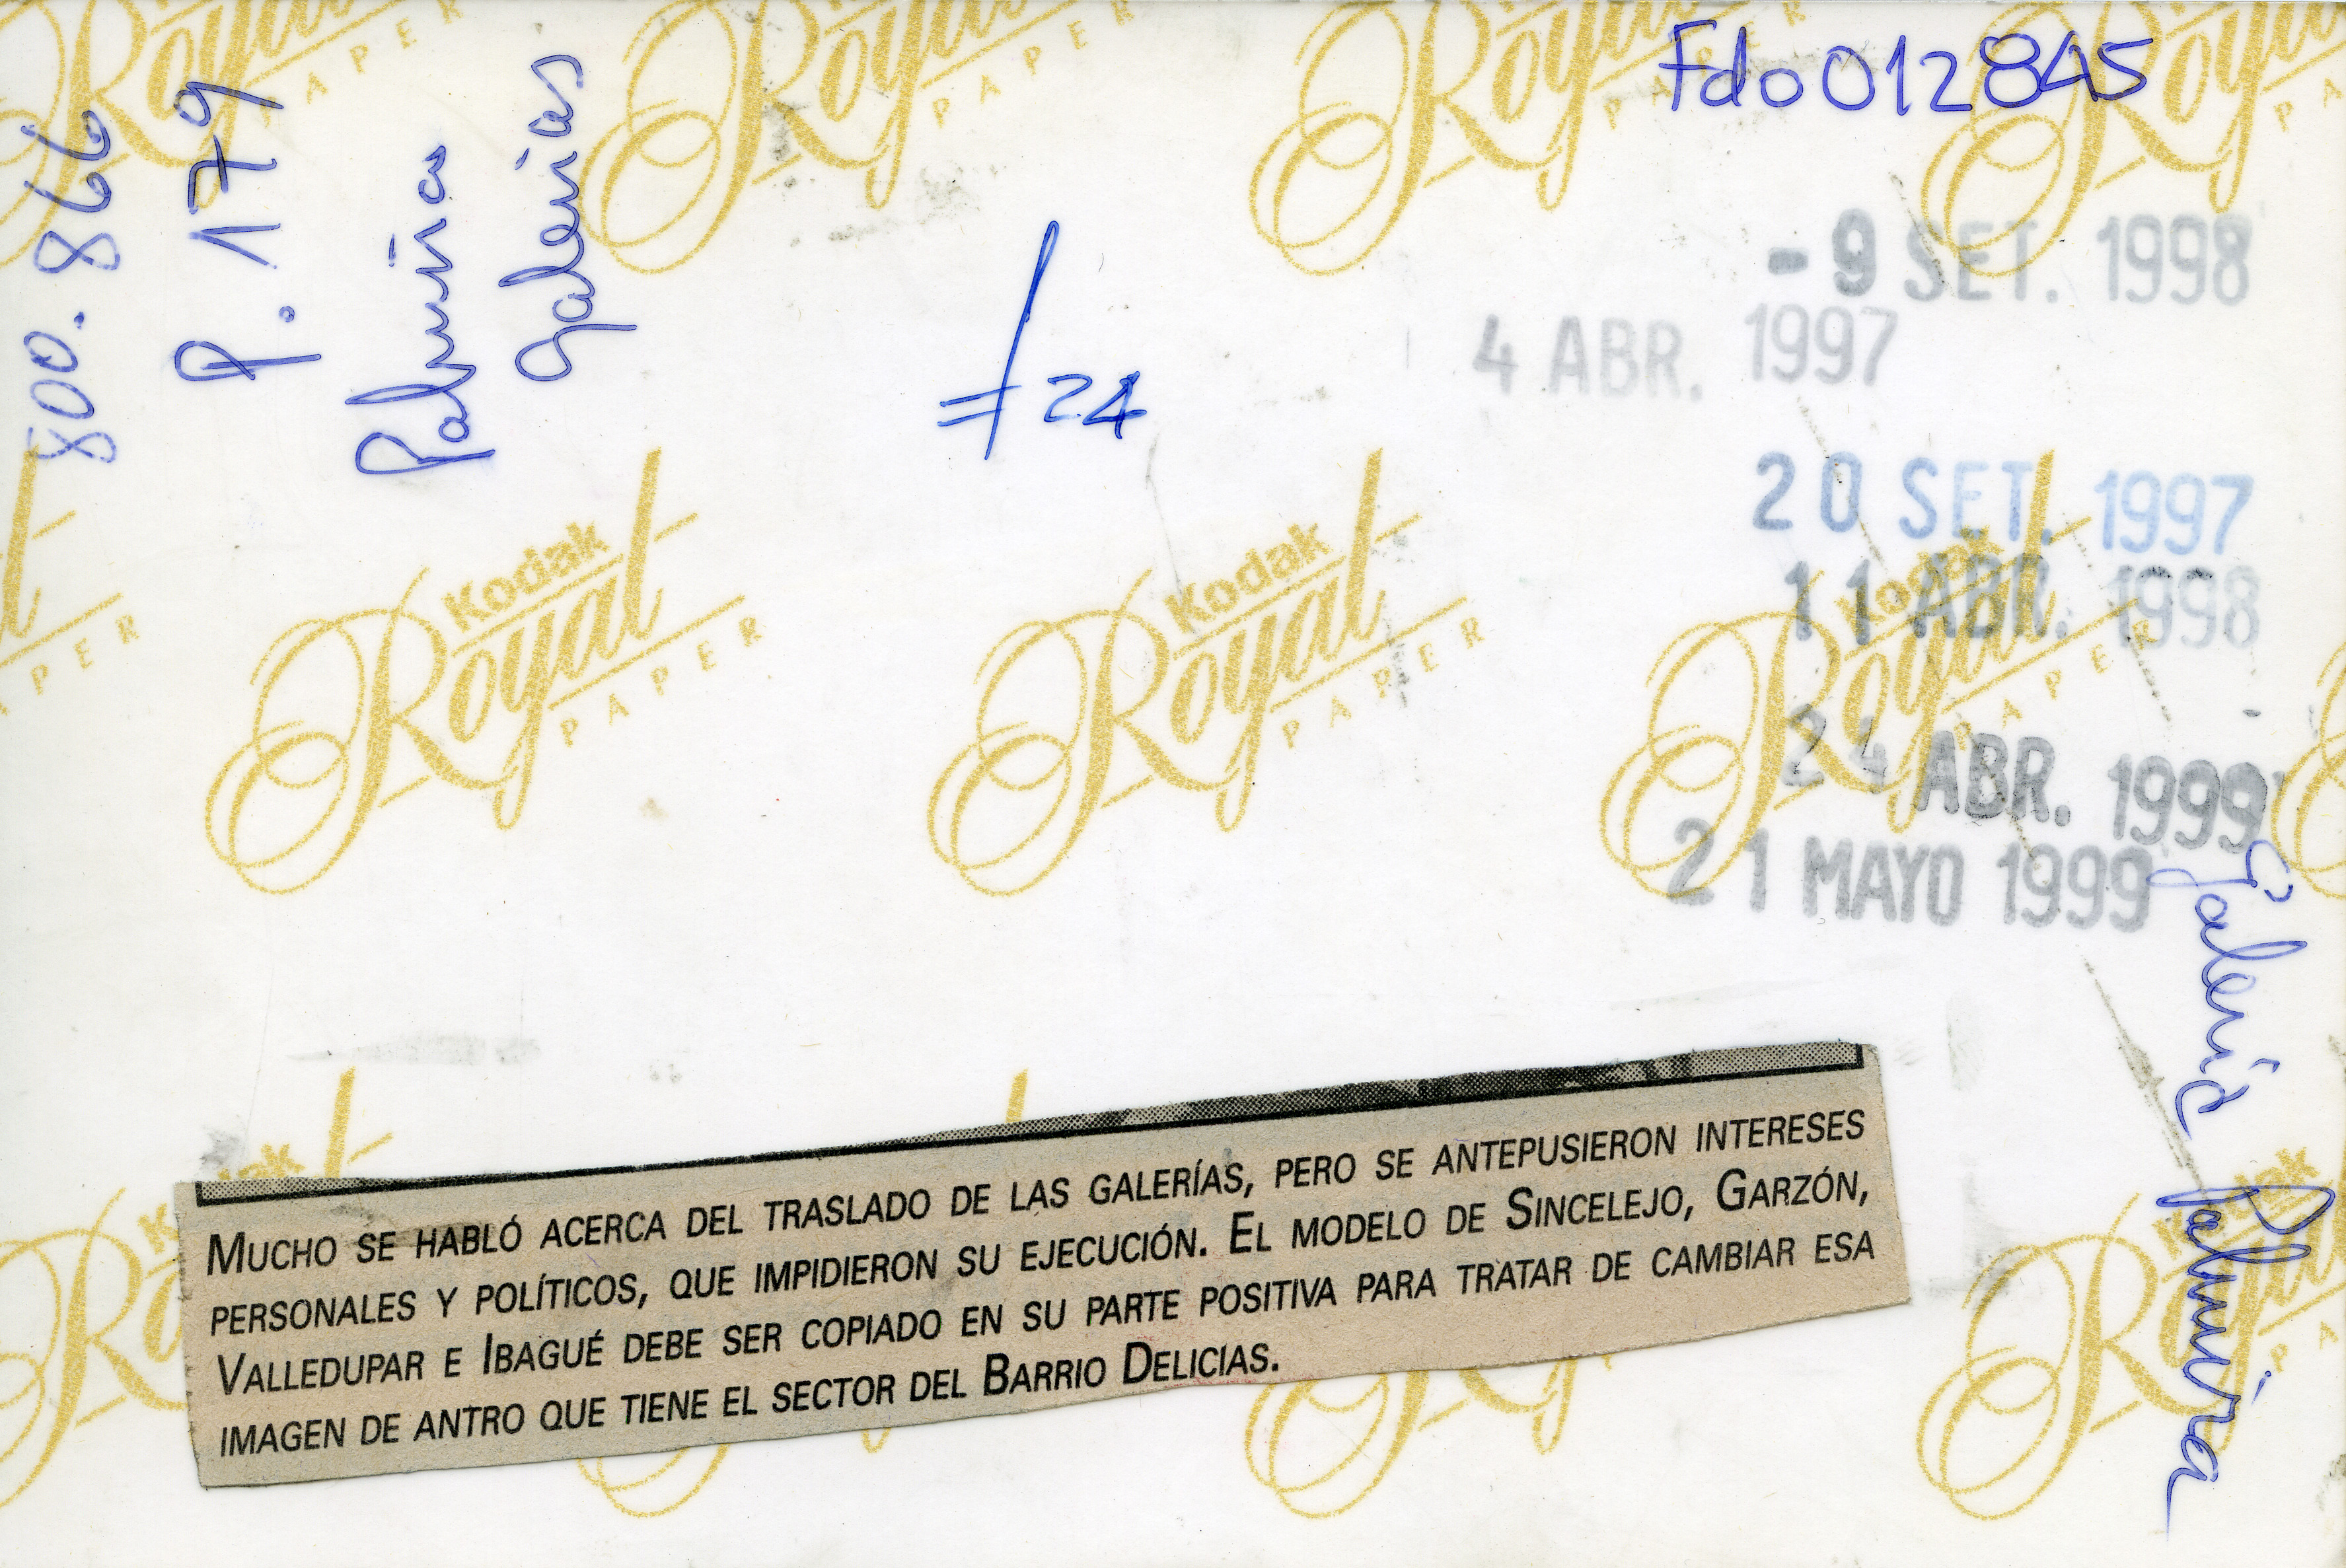 Fdo 012845
800.866
P. 179
Palmira
Galerias
‡ 24
- 9 SET. 1998
4 ABR. 1997
20 SET. 1997
11 ABR. 1998
24 ABR. 1999
21 MAYO 1999
Galeria Palmira
Kodak
Royal
PAPER
MUCHO SE HABLÓ ACERCA DEL TRASLADO DE LAS GALERÍAS, PERO SE ANTEPUSIERON INTERESES
PERSONALES Y POLÍTICOS, QUE IMPIDIERON SU EJECUCIÓN. EL MODELO DE SINCELEJO, GARZÓN,
VALLEDUPAR E IBAGUÉ DEBE SER COPIADO EN SU PARTE POSITIVA PARA TRATAR DE CAMBIAR ESA
IMAGEN DE ANTRO QUE TIENE EL SECTOR DEL BARRIO DELICIAS.